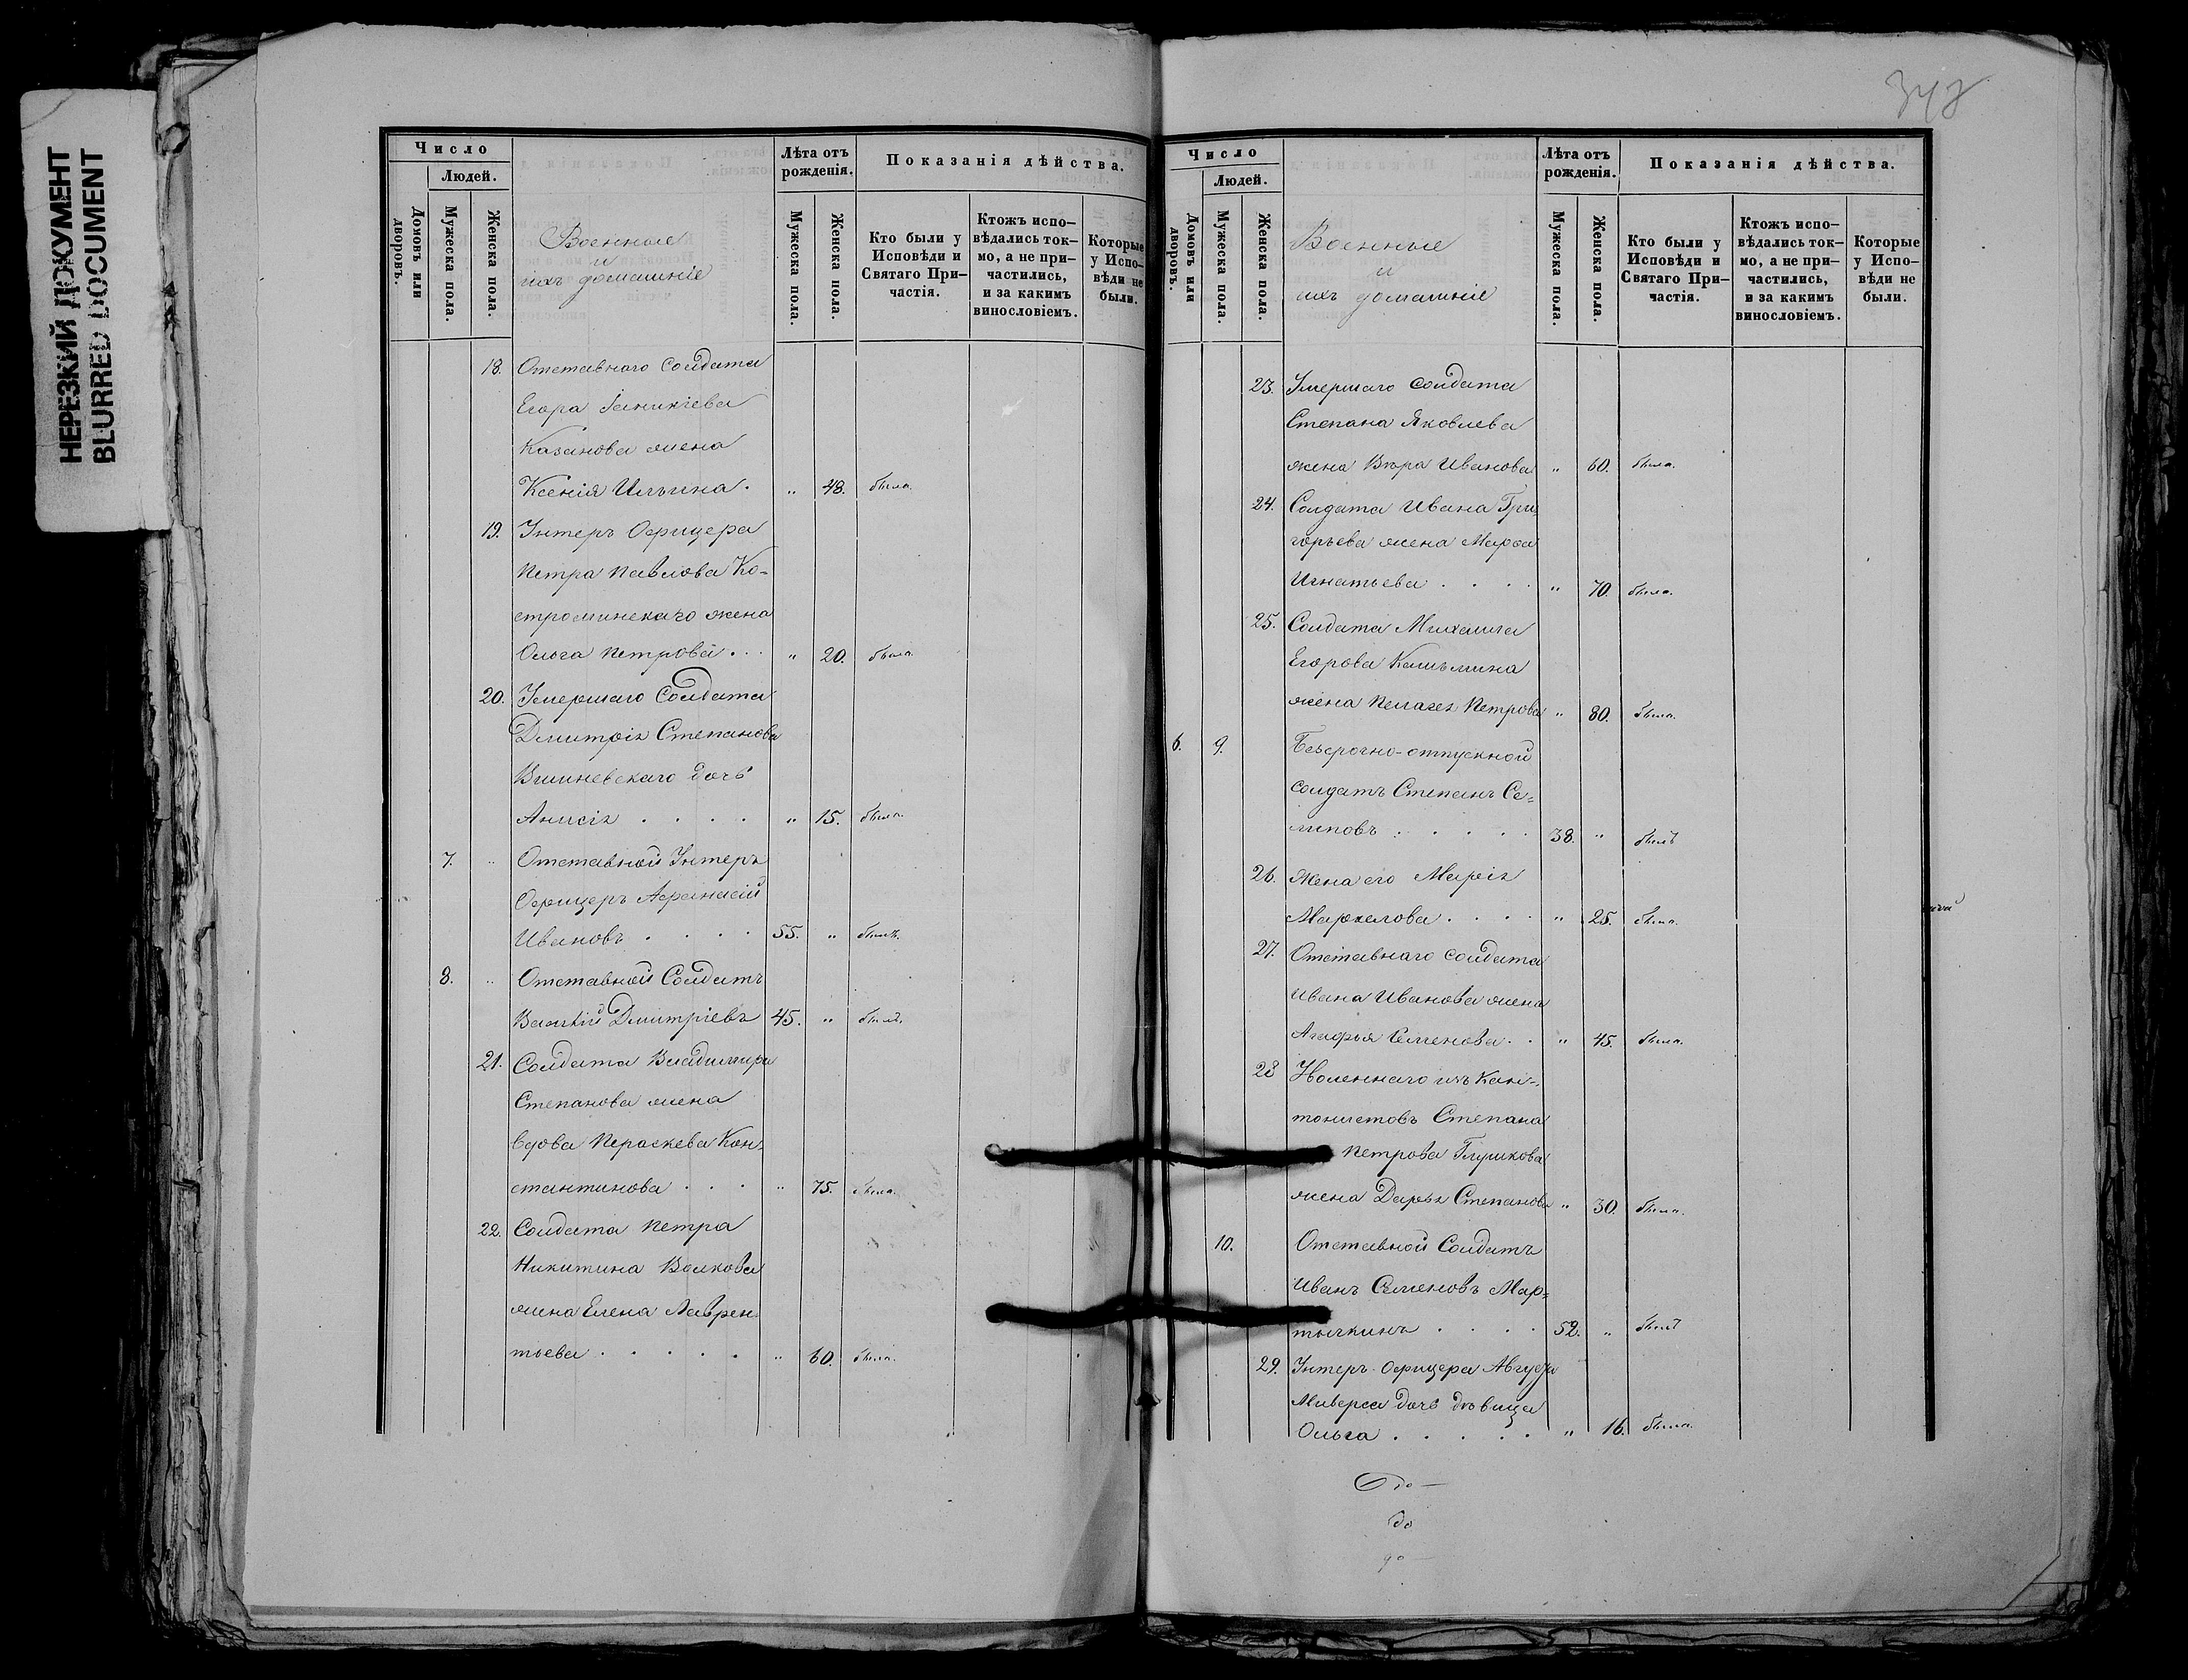 НЕРЕЗКИЙ ДОКУМЕНТ
BLURRED DOCUMENT
Число
Людей.
Домовъ или дворовъ.
Мужеска пола.
Женска пола.
Военные
и
ихъ домашніе
Лѣта отъ рожденія.
Мужеска пола.
Женска пола.
Показанія дѣйства.
Кто были у Исповѣди и Святаго Причастія.
Ктожъ исповѣдались токмо, а не причастились, и за какимъ винословіемъ.
Которые у Исповѣди не были.
18. Отставнаго Солдата
Егора Іаникіева
Казанова жена
Ксенія Ильина . " 48. была.
19. Унтеръ Офицера
Петра Павлова Ко=
строминскаго жена
Ольга Петрова . . . " 20. была.
20. Умершаго Солдата
Дмитрія Степанова
Вишневскаго дочь
Анисія . . . . " 15. была.
7. " Отставной Унтеръ
Офицеръ Афанасій
Ивановъ . . . . 55. " былъ.
8. " Отставной Солдатъ
Василій Дмитріевъ 45. " былъ.
21. Солдата Владимира
Степанова жена
вдова Параскева Кон=
стантинова . . . " 75. была.
22. Солдата Петра
Никитина Волкова
жена Елена Лаврен
тьева . . . . . " 60. была.
348
Число
Людей.
Домовъ или дворовъ.
Мужеска пола.
Женска пола.
Военные
и
ихъ домашніе
Лѣта отъ рожденія.
Мужеска пола.
Женска пола.
Показанія дѣйства.
Кто были у Исповѣди и Святаго Причастія.
Ктожъ исповѣдались токмо, а не причастились, и за какимъ винословіемъ.
Которые у Исповѣди не были.
23. Умершаго солдата
Степана Яковлева
жена Вѣра Иванова " 60. была.
24. Солдата Ивана Гри=
горьева жена Марѳа
Игнатьева . . . . " 70. была.
25. Солдата Михаила
Егорова
жена Пелагея Петрова " 80. была.
6. 9. Безсрочно-отпускной
солдатъ Степанъ
38. " былъ
26. Жена его Марія
Маркелова . . . . " 25. была.
27. Отставнаго солдата
Ивана Иванова жена
Агафья Семенова . . " 45. была.
28 Уволеннаго изъ Кан-
тонистовъ Степана
Петрова Глушкова
жена Дарья Степанова " 30. была.
10. Отставной Солдатъ
Иванъ Семеновъ Мар=
тычкинъ . . . . 52. " былъ
29. Унтеръ-Офицера
дочь дѣвица
Ольга . . . . . " 16. была.
до
до